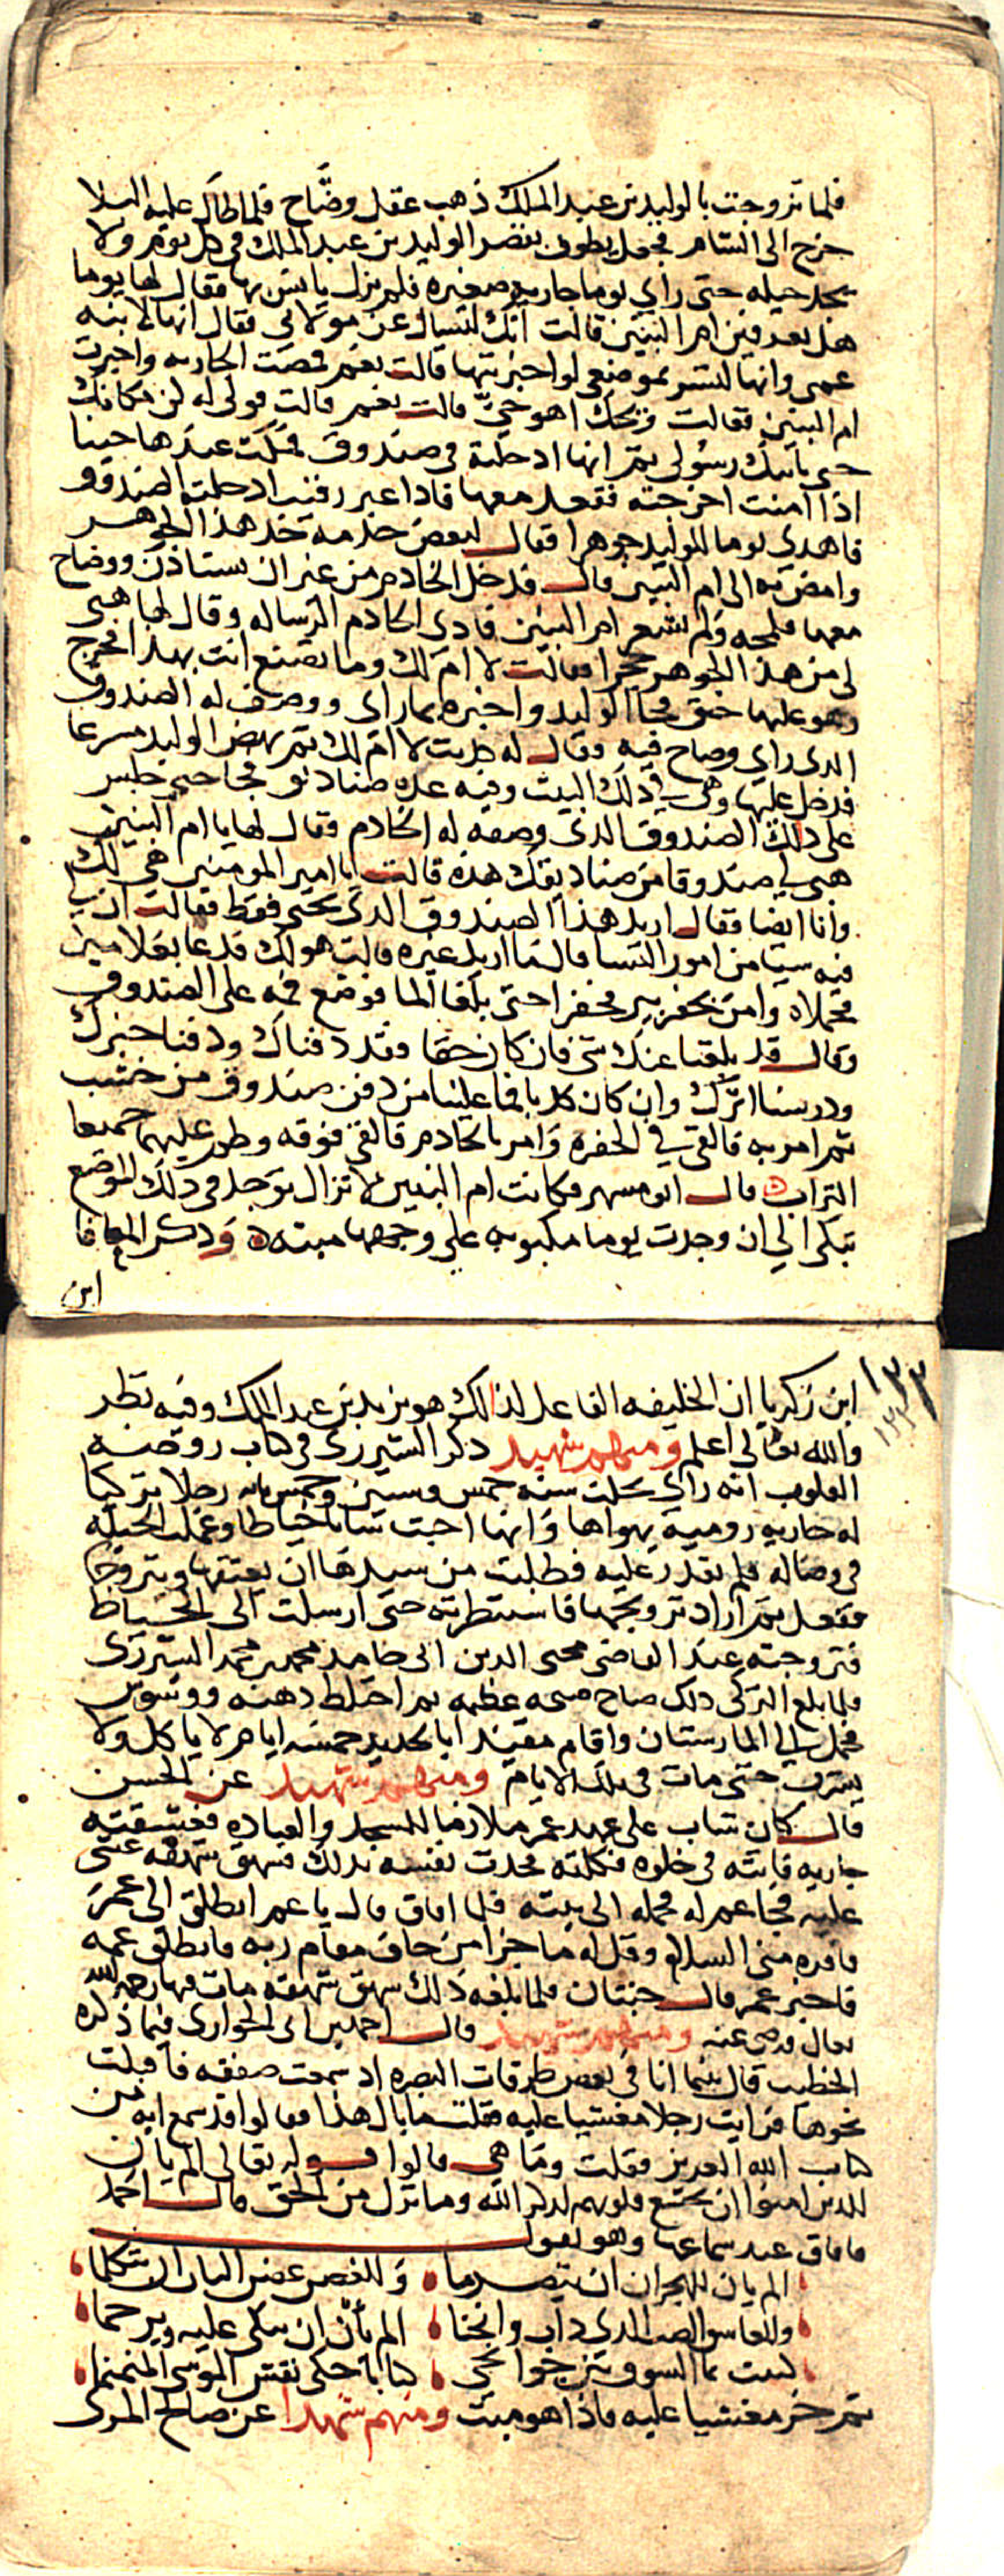 فلما تزوجت بالوليد بن عبد الملك ذهب عقل وضاح فلما طال عليه البلا
خرج الى الشام فجعل يطوف بقصر الوليد بن عبد الملك في كل يوم ولا
يجد حيله حتى راي يوما جاريه صغيره فلم يزل يانس بها فقال لها يوما
هل تعرفين ام البنين قالت انك لتسال عن مولاتي فقال انها لابنه
عمي وانها لتسر بموضعي لو اخبرتها قالت نعم فمضت الجاريه واخبرت
ام البنين فقالت ويحك اهو حي قالت نعم قالت قولي له كن مكانك
حتى ياتيك رسولي ثم انها ادخلته في صندوق فمكث عندها حينا
اذا امنت اخرجته فقعد معها فاذا عين رقيب ادخلته الصندوق
فاهدي يوما للوليد جوهرا فقال لبعض خدمه خذ هذا الجوهر
وامض به الى ام البنين قال فدخل الخادم من غير ان يستاذن ووضاح
معها فلمحه ولم تشعر ام البنين فادى الخادم الرساله وقال لها هبي
لي من هذا الجوهر حجرا فقالت لا ام لك وما تصنع انت بهذا فخرج
وهو عليها حنق فجا الوليد واخبره بما راى ووصف له الصندوق
الذي راي وضاح فيه فقال له كذبت لا ام لك ثم نهض الوليد مسرعا
فدخل عليها وهي في ذلك البيت وفيه عده صناديق فجا حتى جلس
على ذلك الصندوق الذي وصفه له الخادم فقال لها يا ام البنين
هبي لي صندوقا من صناديقك هذه قالت يا امير المومنين هي لك
وانا ايضا فقال اريد هذا الصندوق الذي تحتي فقط فقالت ان
فيه شيا من امور النسا قال ما اريد غيره قالت هو لك فدعا بغلامين
فحملاه وامر بحفر بير فحفرا حتى بلغا الما فوضع فمه على الصندوق
وقال قد بلغنا عنك شي فان كان حقا فقد دفناك ودفنا خبرك
ودرسنا اثرك وان كان كذبا فما علينا من دفن صندوق من خشب
ثم امر به فالقي في الحفره وامر بالخادم فالقي فوقه وطم عليهما جميعا
التراب قال ابو مسهر فكانت ام البنين لا تزال توجد في ذلك الموضع
تبكي الى ان وجدت يوما مكبوبه على وجهها ميته وذكر المعافا
ابن
١٣٣
ابن زكريا ان الخليفه الفاعل لذلك هو يزيد بن عبد الملك وفيه نظر
والله تعالى اعلم ومنهم شهيد ذكر الشيرزي في كتاب روضه
القلوب انه راي بحلب سنه خمس وستين وخمس مايه رجلا تركيا
له جاريه روميه يهواها وانها احبت شابا خياطا وعملت الحيله
في وصاله فلم تقدر عليه فطلبت من سيدها ان يعتقها ويتزوجها
ففعل ثم اراد تزويجها فاستنظرته حتى ارسلت الى الخياط
فتزوجته عند القاضي محيي الدين ابي حامد محمد بن محمد الشهرزوري
فلما بلغ التركي ذلك صاح صيحه عظيمه ثم اختلط ذهنه ووسوس
فحمل الى المارستان واقام مقيدا بالحديد خمسه ايام لا ياكل ولا
يشرب حتى مات في تلك الايام ومنهم شهيد عن الحسن
قال كان شاب على عهد عمر ملازما للمسجد والعباده فعشقته
جاريه فاتته في خلوه فكلمته فحدث نفسه بذلك فشهق شهقه غشي
عليه فجا عم له فحمله الى بيته فلما افاق قال يا عم انطلق الى عمر
فاقره مني السلام وقل له ما جزا من خاف مقام ربه فانطلق عمه
فاخبر عمر قال جنتان فلما بلغه ذلك شهق شهقه مات فيها رحمه الله
تعالى ورضي عنه ومنهم شهيد قال احمد بن ابي الحواري فيما ذكره
الخطيب قال بينما انا في بعض طرقات البصره اذ سمعت صعقه فاقبلت
نحوها فرايت رجلا مغشيا عليه فقلت ما بال هذا فقالوا قد سمع ايه من
كتاب الله العزيز فقلت وما هي قالوا قوله تعالى الم يان
للذين امنوا ان تخشع قلوبهم لذكر الله وما نزل من الحق قال احمد
فافاق عند سماعها وهو يقول
الم يان للهجران ان يتصرما وللغصن غصن البان ان يتكلما
وللعاشق الصب الذي ذاب وانحنا الم يان ان يبكى عليه ويرحما
كتبت بما الشوق بين جوانحي كتابا حكى نقش الموشى المنمنما
ثم خر مغشيا عليه فاذا هو ميت ومنهم شهدا عن صالح المري